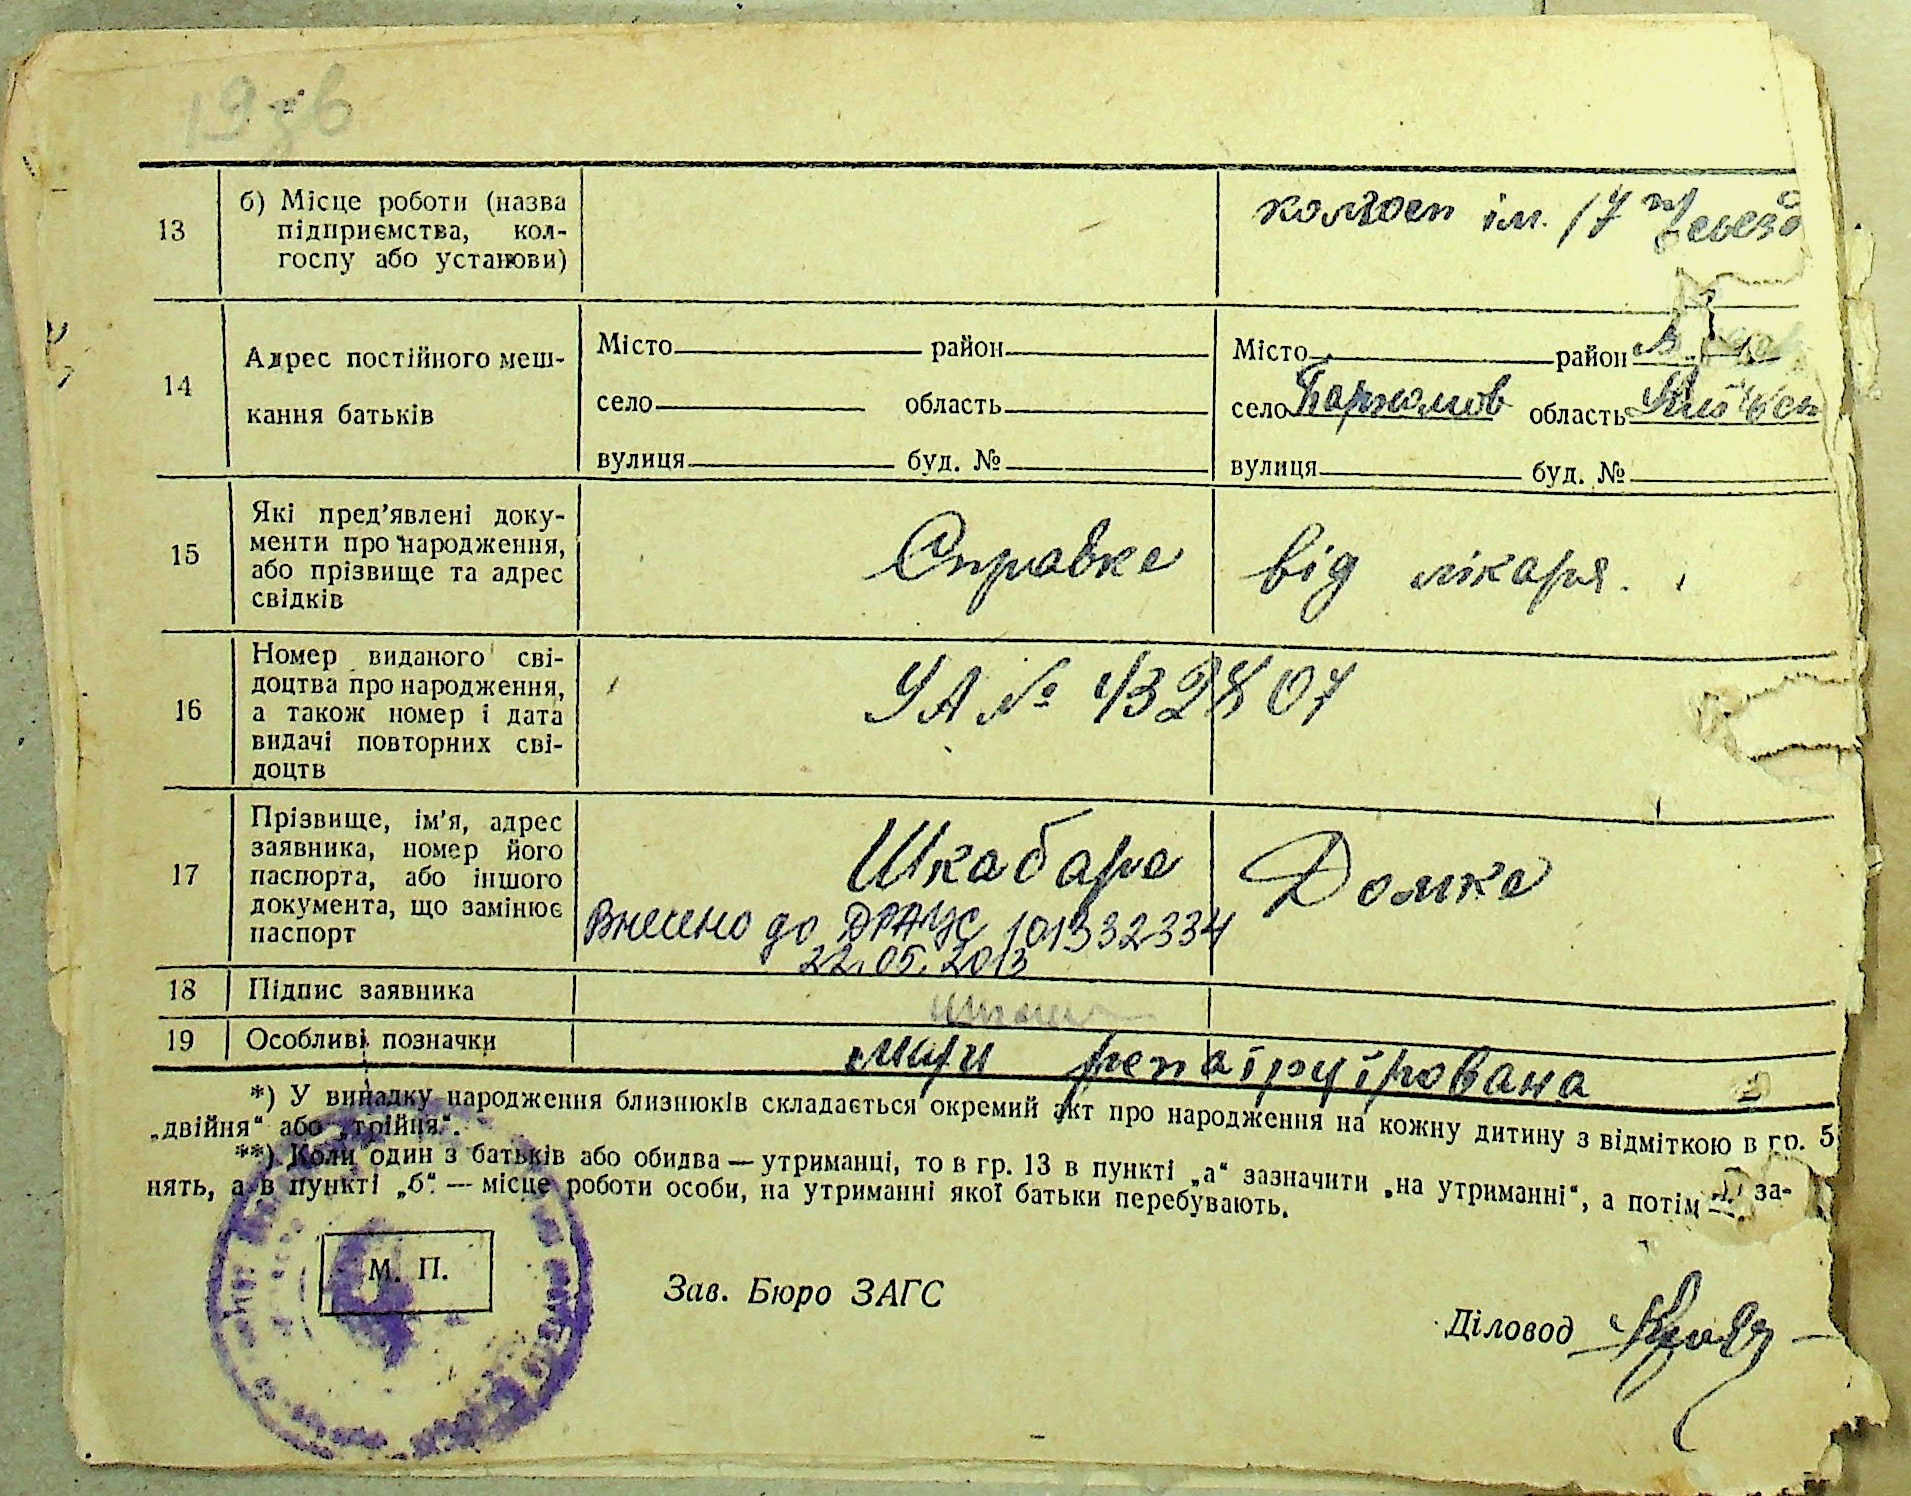 13
б) Місце роботи (назва
підприємства, кол-
госпу або установи)
колгосп ім. 17 п/зьезд
14
Адрес постійного меш-
кання батьків
Місто район
село область
вулиця буд. №
Місто район
село Пархомов область
вулиця буд. №
15
Які пред'явлені доку-
менти про народження,
або прізвище та адрес
свідків
Справке від лікаря.
16
Номер виданого сві-
доцтва про народження,
а також номер і дата
видачі повторних сві-
доцтв
УА №
17
Прізвище, ім'я, адрес
заявника, номер його
паспорта, або іншого
документа, що замінює
паспорт
Шкабаре Домке
Внесено до ДРАЦС 101332334
22.05.2013
18 Підпис заявника
19 Особливі позначки
репатріруірована
*) У випадку народження близнюків складається окремий акт про народження на кожну дитину з відміткою в гр. 5
„двійня“ або „трійня“.
**) Коли один з батьків або обидва — утриманці, то в гр. 13 в пункті „а“ зазначити „на утриманні“, а потім за-
нять, а в пункті „б“ — місце роботи особи, на утриманні якої батьки перебувають.
М. П.
Зав. Бюро ЗАГС
Діловод